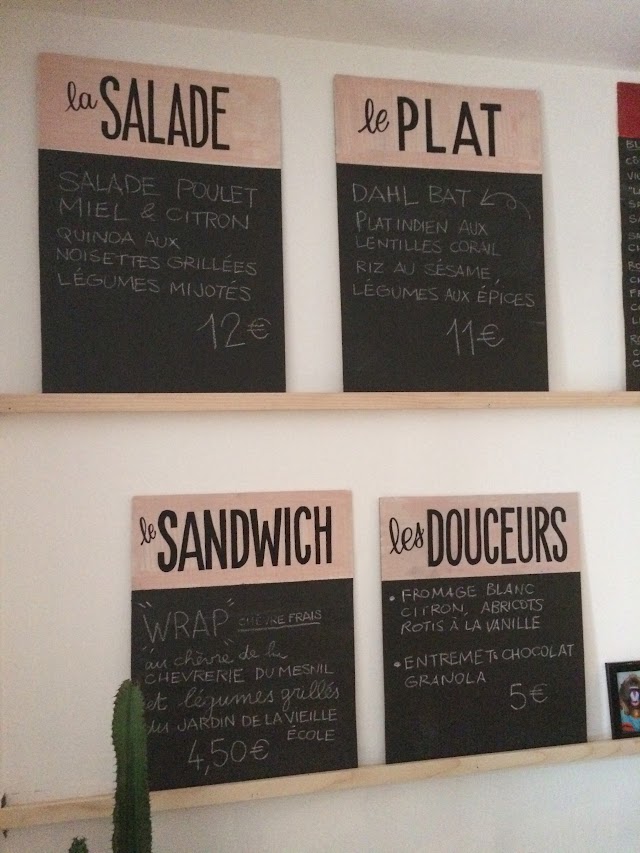 la SALADE
SALADE POULET
MIEL & CITRON
QUINOA AUX
NOISETTES GRILLÉES
LÉGUMES MIJOTÉS
12€
le PLAT
DAHL BAT
PLAT INDIEN AUX
LENTILLES CORAIL
RIZ AU SÉSAME,
LÉGUMES AUX ÉPICES
11€
le SANDWICH
WRAP CHÈVRE FRAIS
au chèvre de la
CHEVRERIE DU MESNIL
et légumes grillés
du JARDIN DE LA VIEILLE
ÉCOLE
4,50€
les DOUCEURS
• FROMAGE BLANC
CITRON, ABRICOTS
ROTIS À LA VANILLE
• ENTREMETS CHOCOLAT
GRANOLA
5€